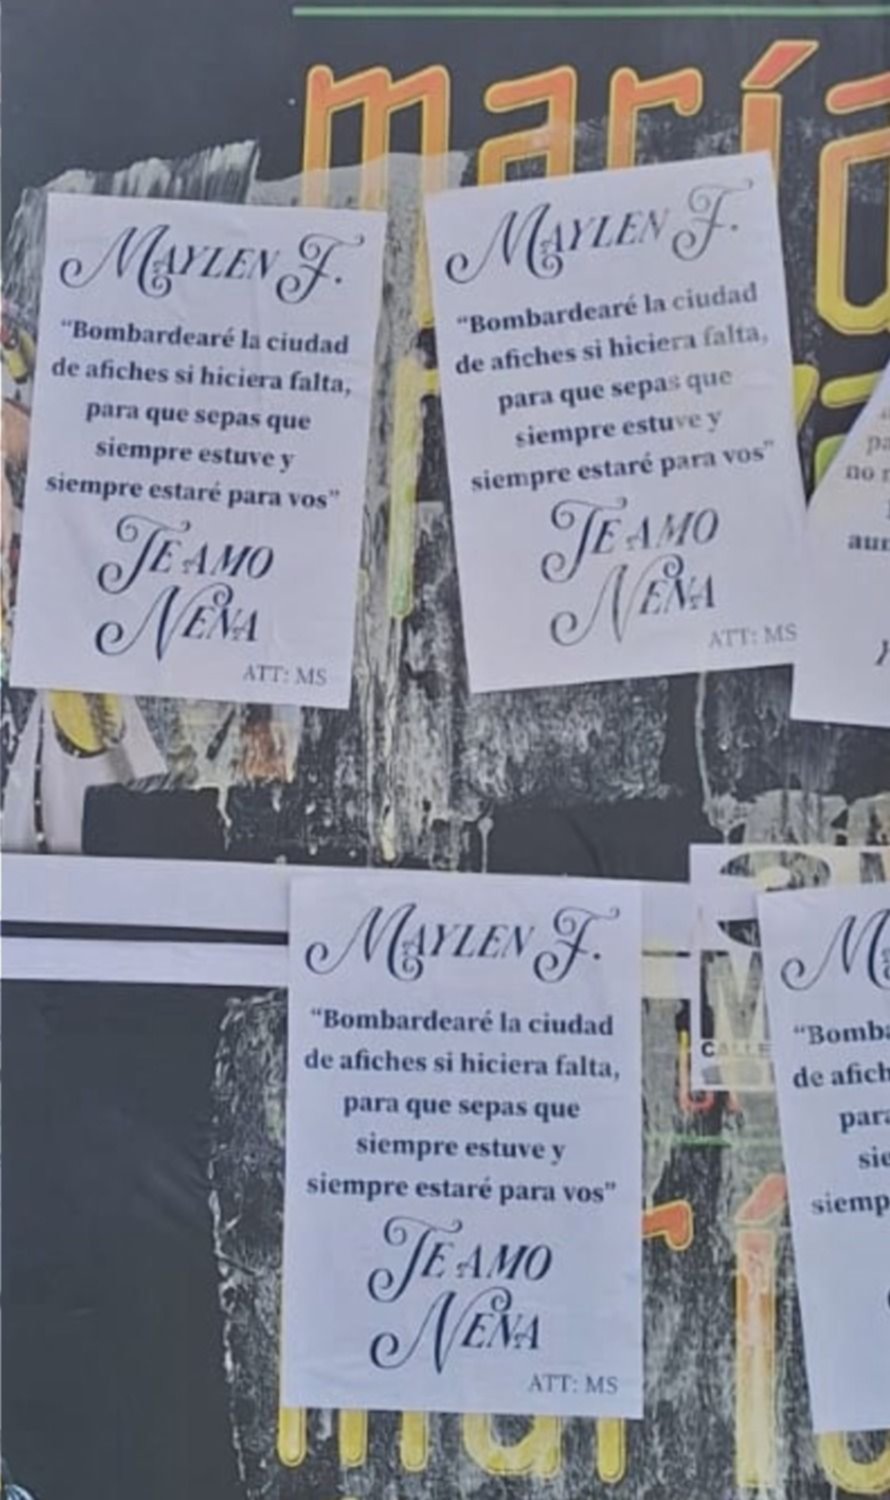 maría
MAYLEN F.
“Bombardearé la ciudad
de afiches si hiciera falta,
para que sepas que
siempre estuve y
siempre estaré para vos”
TE AMO
NENA
ATT: MS
MAYLEN F.
“Bombardearé la ciudad
de afiches si hiciera falta,
para que sepas que
siempre estuve y
siempre estaré para vos”
TE AMO
NENA
ATT: MS
no
MAYLEN F.
“Bombardearé la ciudad
de afiches si hiciera falta,
para que sepas que
siempre estuve y
siempre estaré para vos”
TE AMO
NENA
ATT: MS
CALLE
M
“Bomba
de afich
para
sie
siemp